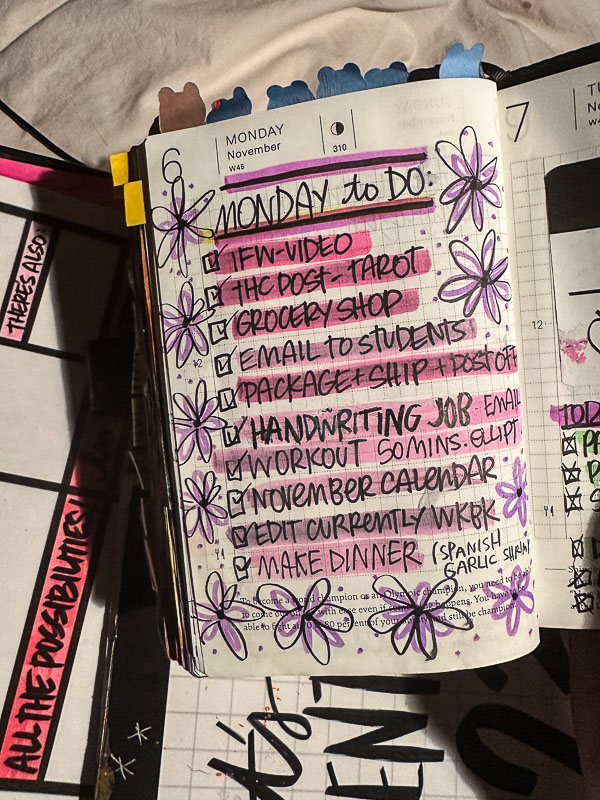 6
MONDAY
November
W45
310
MONDAY to DO:
1FW-VIDEO
THC POST-TAROT
GROCERY SHOP
EMAIL TO STUDENTS
PACKAGE + SHIP + POST OFF
HANDWRITING JOB - EMAIL
WORKOUT 50MINS. ELLIPT
NOVEMBER CALENDAR
EDIT CURRENTLY WKBK
MAKE DINNER (SPANISH
GARLIC SHRIM
To become a world champion or an Olympic champion, you need to
to come with ease even if happens. You have
able to fight at 70 to 80 percent of your and still be champion.
7
12
THERE'S ALSO:
ALL THE POSSIBILITIES!
it's